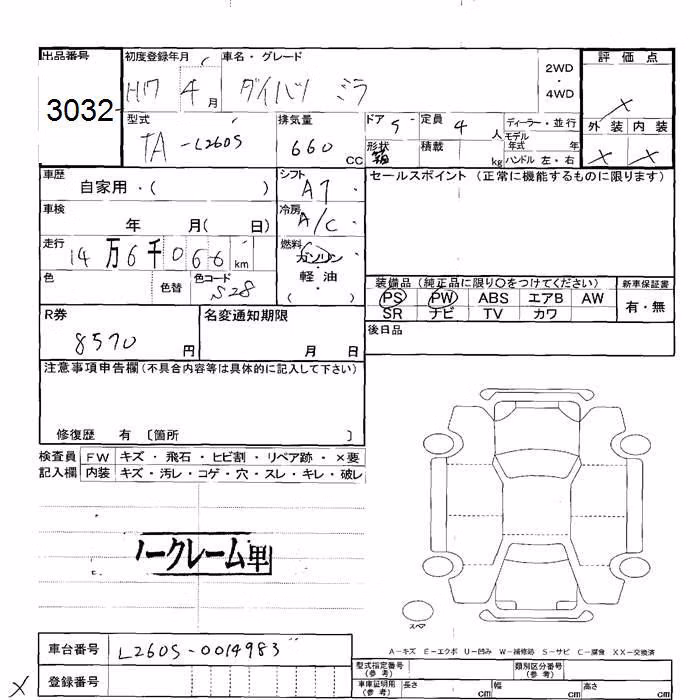 出品番号
3032
初度登録年月
H17 4月
車名・グレード
ダイハツ ミラ
2WD
・
4WD
評価点
×
外装 内装
× ×
型式
TA-L260S
排気量
660 CC
ドア 5
定員 4 人
形状
積載 kg
ディーラー・並行
モデル
年式 年
ハンドル 左・右
車歴
自家用・( )
シフト
AT
セールスポイント (正常に機能するものに限ります)
車検
年 月( 日)
冷房
A/C
走行
14万6千066km
燃料
ガソリン
・
軽油
( )
色
色替
色コード
S28
装備品 (純正品に限り〇をつけてください)
新車保証書
PS PW ABS エアB AW
SR ナビ TV カワ
有・無
R券
8570円
名変通知期限
月 日
後日品
注意事項申告欄 (不具合内容等は具体的に記入して下さい)
修復歴 有 〔箇所 〕
検査員
記入欄
FW キズ・飛石・ヒビ割・リペア跡・×要
内装 キズ・汚レ・コゲ・穴・スレ・キレ・破レ
ノークレーム車
スペア
A－キズ E－エクボ U－凹み W－補修跡 S－サビ C－腐食 XX－交換済
車台番号
L260S-0014983
型式指定番号
(参考)
類別区分番号
(参考)
×
登録番号
車庫証明用
(参考)
長さ cm
幅 cm
高さ cm